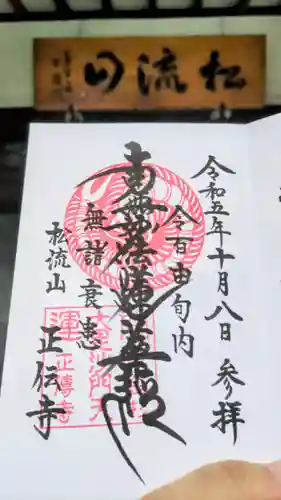 松流山
令和五年十月八日 参拝
令百由旬内
南無妙法蓮華経
無諸衰患
松流山 正伝寺
大毘沙門天
正傳寺